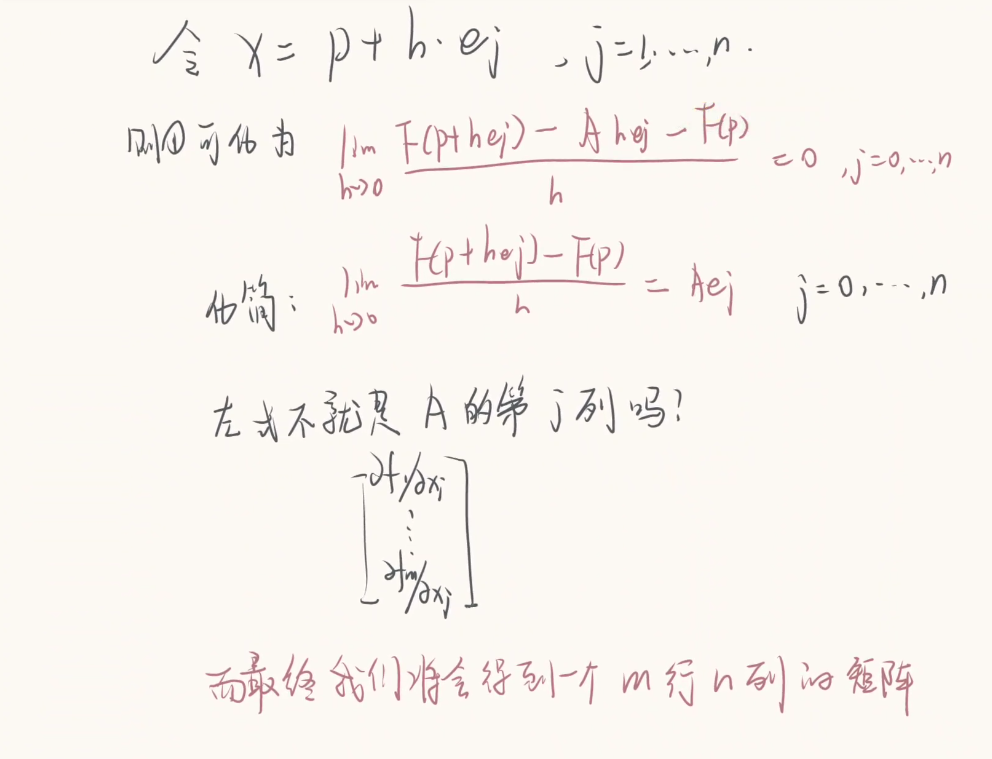 令 x = p + h·ej , j=1,···,n.
则①可化为 lim h→0 (F(p+hej) − A hej − F(p)) / h = 0 , j=0,···,n
化简: lim h→0 (F(p+hej) − F(p)) / h = Aej j=0,···,n
左式不就是 A 的第 j 列吗?
[ ∂f₁/∂xj
⋮
∂fm/∂xj ]
而最终我们将会得到一个 m 行 n 列的矩阵